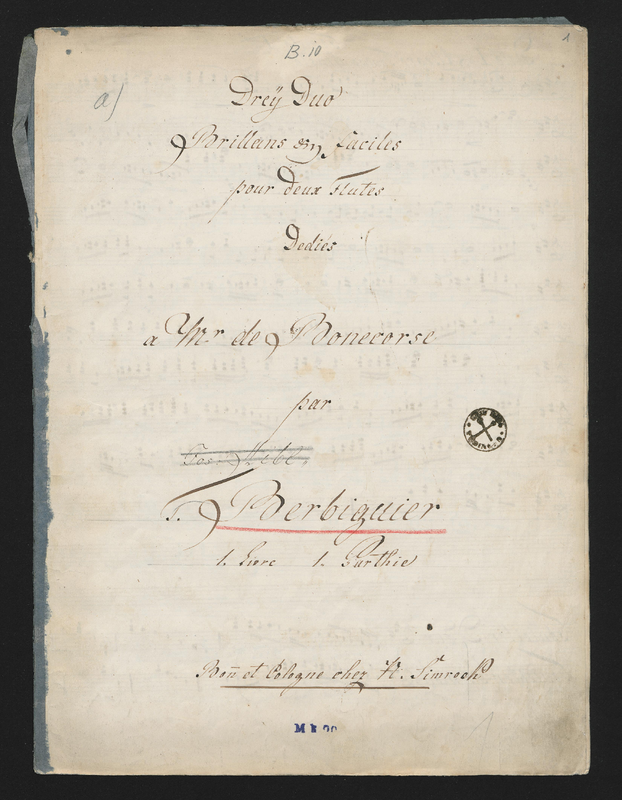 B. 10
1
a)
Dreÿ Duo
Brillans en faciles
pour deux Flutes
Dediés
a Mr de Bonecorse
par
T. Berbiguier
1. Livre 1. Parthie
Bon̄ et Cologne chez N. Simrock